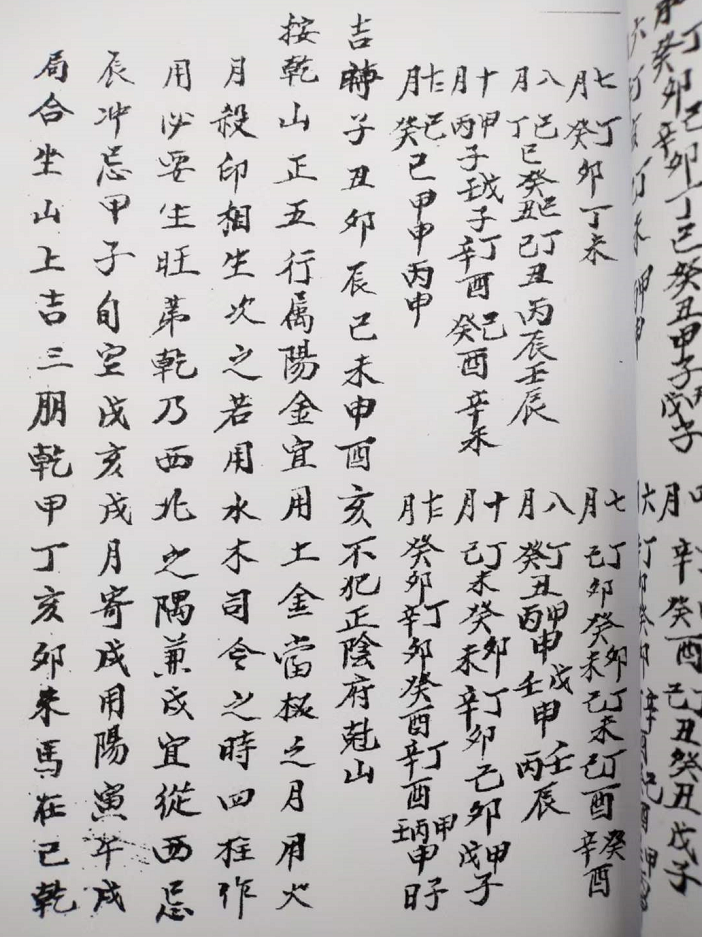 月癸卯辛卯丁巳癸丑甲子戊子
月辛癸酉己丑癸丑戊子
七月丁癸卯丁未
八月己丁巳癸丑己丁丑丙辰壬辰
十月甲丙子戊壬子丁辛酉己癸酉辛未
十一月己癸巳甲申丙申
七月丁己卯癸卯癸未丁己未丁己酉癸辛酉
八月丁癸丑甲丙申戊壬申壬丙辰
十月丁己未癸卯癸未丁辛卯己卯甲戊子
十一月癸卯丁辛卯癸酉丁辛酉丙壬申甲子日
吉時子丑卯辰巳未申酉亥不犯正陰府尅山
按乾山正五行属陽金宜用土金當极之月用火
月殺印相生次之若用水木司令之時四柱作
用必要生旺苐乾乃西北之隅兼戌宜從西忌
辰冲忌甲子旬空戌亥戌月寄戌用陽寅午戌
局合坐山上吉三朋乾甲丁亥卯未馬在巳乾